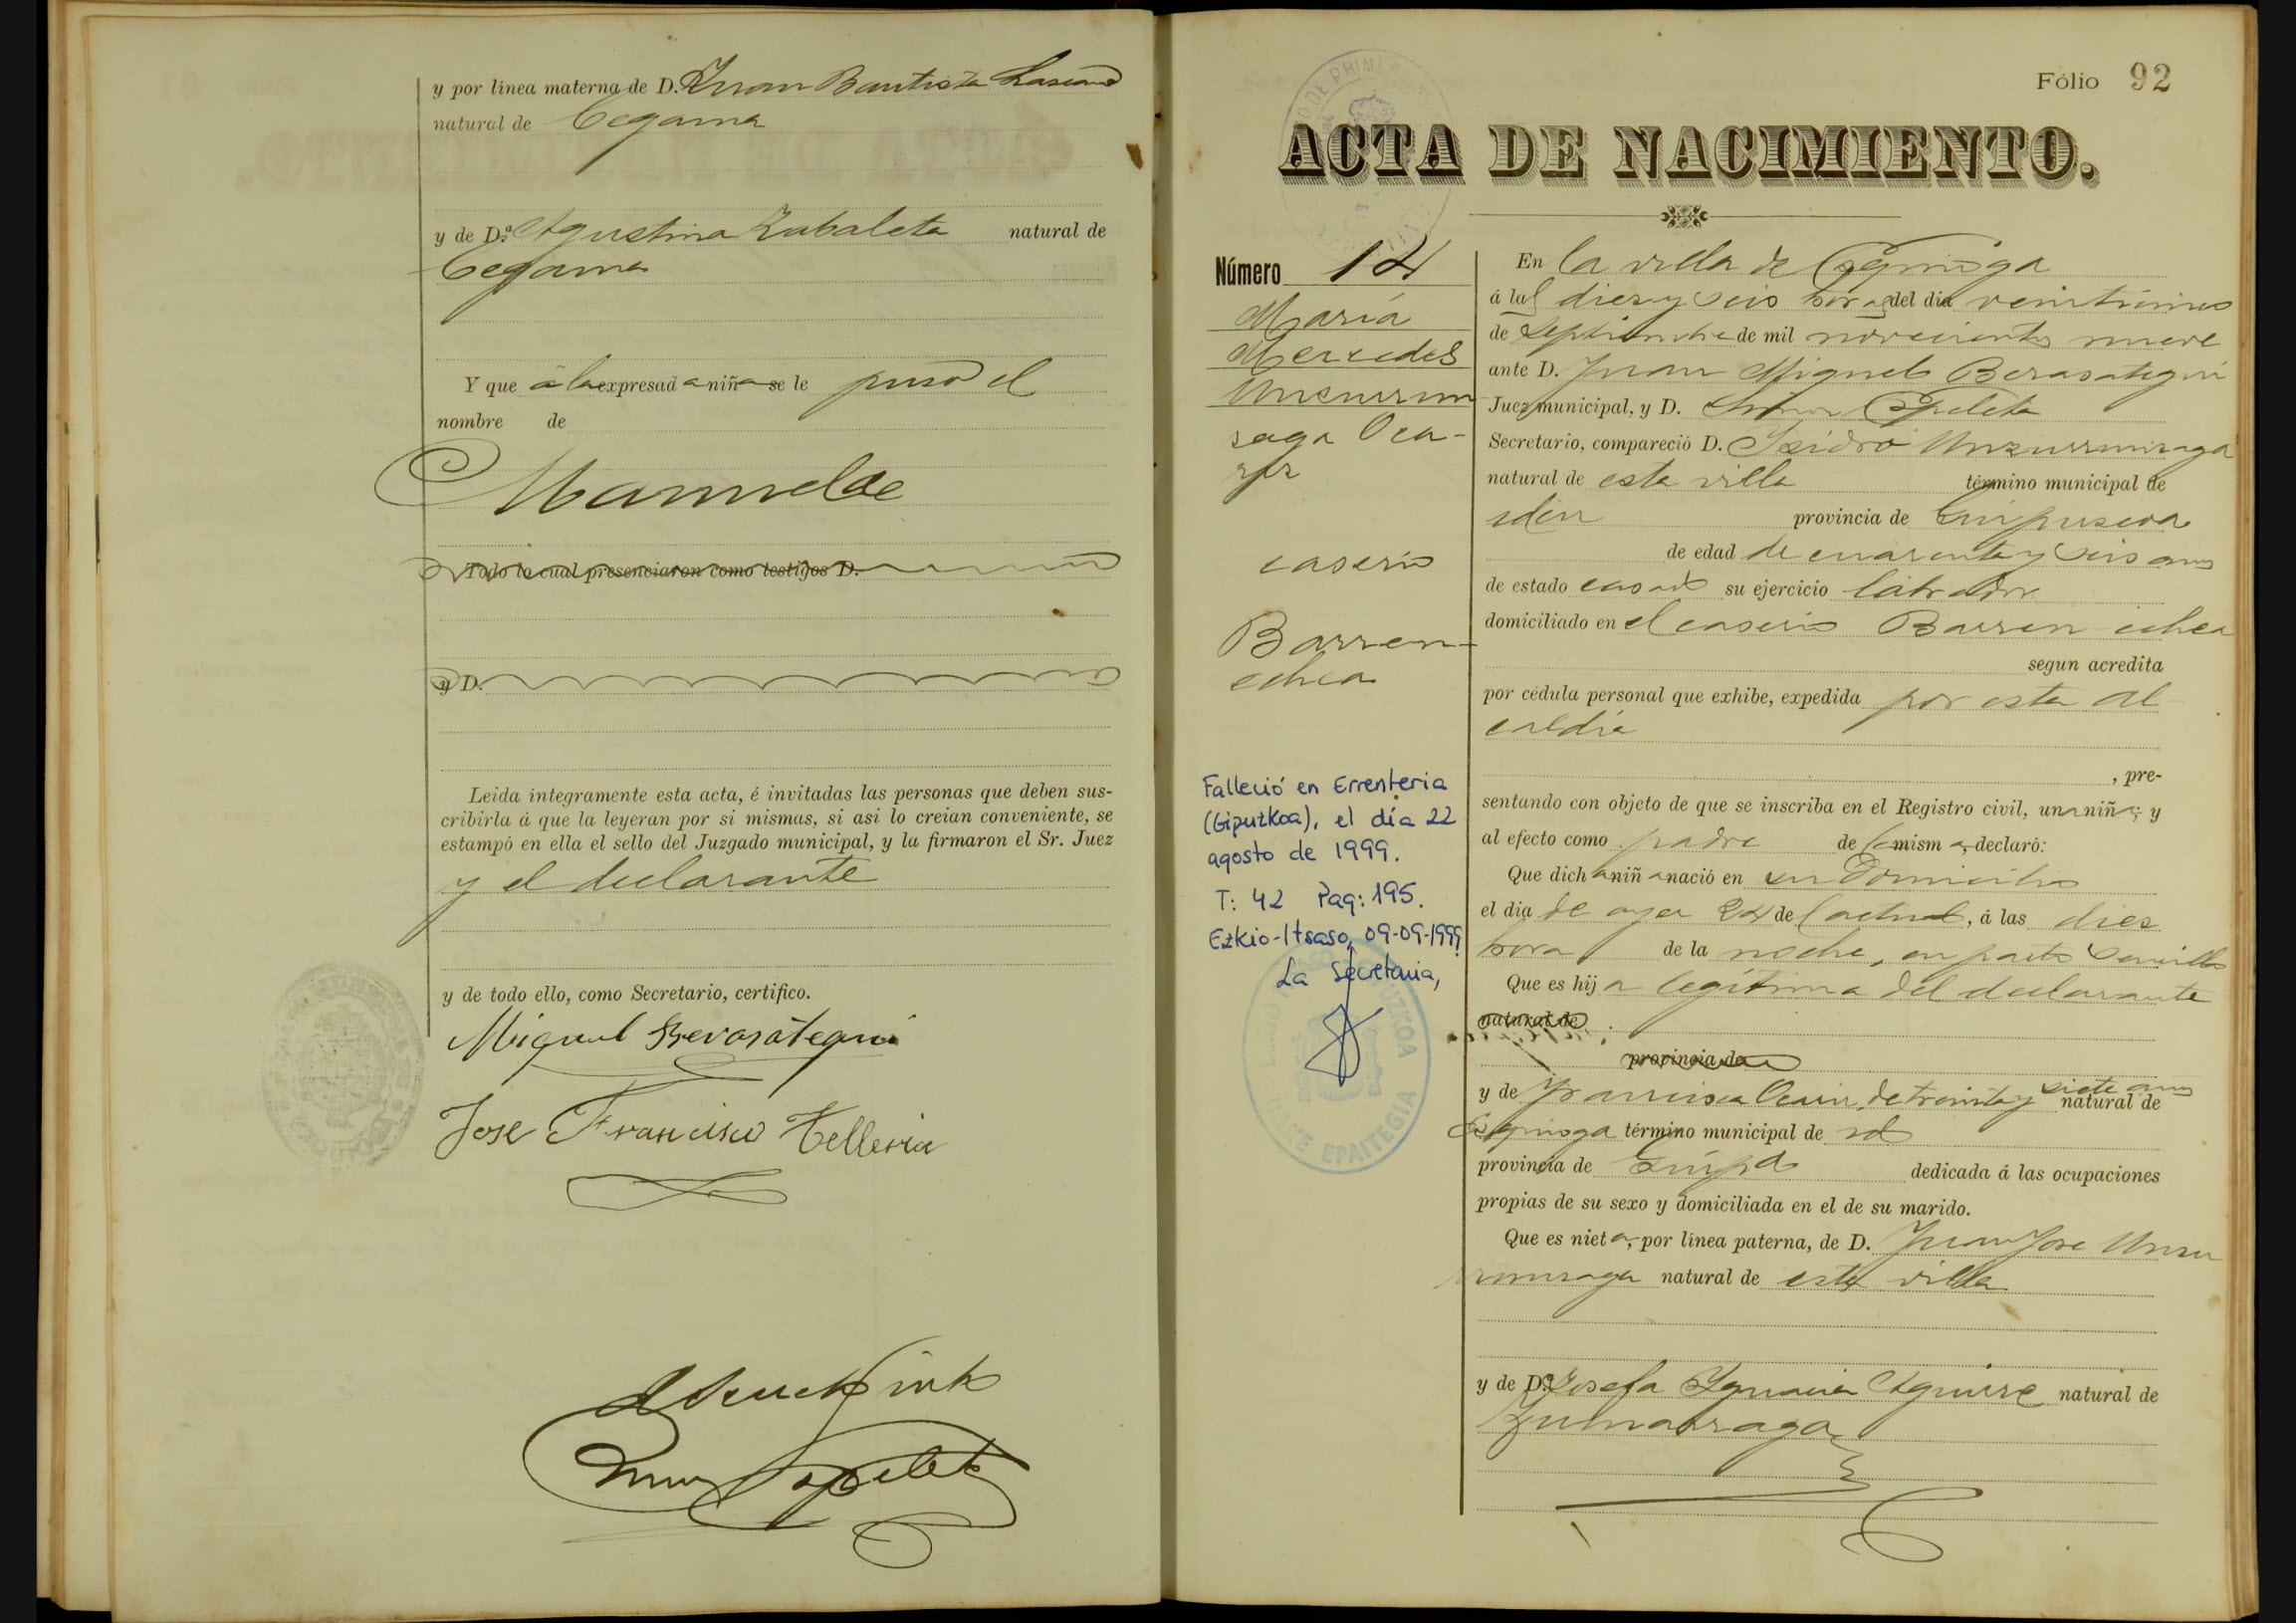 y por línea materna de D. Juan Bautista Lascano
natural de Cegama
y de D.ª Agustina Zubaleta natural de
Cegama
Y que á la expresad a niña se le puso el
nombre de
Manuela
Todo lo cual presenciaron como testigos D.
y D.
Leida íntegramente esta acta, é invitadas las personas que deben sus-
cribirla á que la leyeran por si mismas, si asi lo creian conveniente, se
estampó en ella el sello del Juzgado municipal, y la firmaron el Sr. Juez
y el declarante
y de todo ello, como Secretario, certifico.
Miguel Berasategui
Jose Francisco Telleria
Fólio 92
ACTA DE NACIMIENTO.
Número 14
María
Mercedes
Unzurrun
zaga Oca-
riz
caserío
Barren-
echea
Falleció en Errenteria
(Gipuzkoa), el día 22
agosto de 1999.
T: 42 Pag: 195.
Ezkio-Itsaso, 09-09-1999
La Secretaria,
En la villa de Ezquioga
á las diez y seis horas del dia
de Septiembre de mil novecientos nueve
ante D. Juan Miguel Berasategui
Juez municipal, y D. Epeleta
Secretario, compareció D. Isidro Unzurrunzaga
natural de esta villa término municipal de
idem provincia de Guipuzcoa
de edad de cuarenta y seis años
de estado casado su ejercicio labrador
domiciliado en el caserío Barren echea
segun acredita
por cédula personal que exhibe, expedida por esta Al
caldía
, pre-
sentando con objeto de que se inscriba en el Registro civil, una niña; y
al efecto como padre de la misma, declaró:
Que dicha niña nació en su Domicilio
el dia de ayer 24 del actual, á las diez
hora de la noche, en parto sencillo
Que es hija legítima del declarante
natural de
provincia de
y de Francisca Ocariz, de treinta y siete años natural de
Ezquioga término municipal de id
provincia de Guipa dedicada á las ocupaciones
propias de su sexo y domiciliada en el de su marido.
Que es nieta, por línea paterna, de D. Juan José Unzu
rrunzaga natural de esta villa
y de D.ª Josefa Ignacia Aguirre natural de
Zumarraga